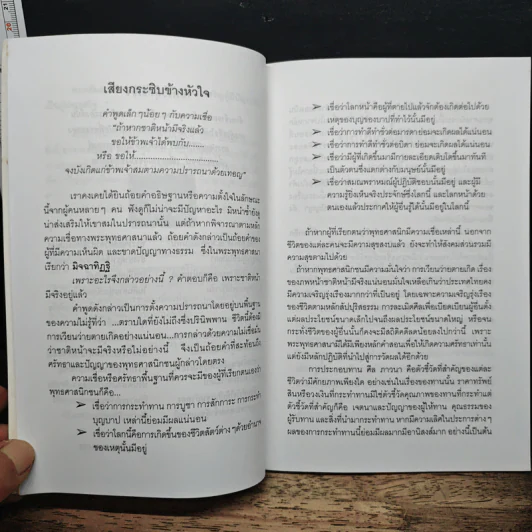 เสียงกระซิบข้างหัวใจ
คำพูดเล็กๆน้อยๆ กับความเชื่อ
"ถ้าหากชาติหน้ามีจริงแล้ว
ขอให้ข้าพเจ้าได้พบกับ......
หรือ ขอให้...........................
จงบังเกิดแก่ข้าพเจ้าสมตามความปรารถนาด้วยเทอญ"
เราคงเคยได้ยินถ้อยคำอธิษฐานหรือความตั้งใจในลักษณะ
นี้จากผู้คนหลายๆ คน ฟังดูก็ไม่น่าจะมีปัญหาอะไร มิหนำซ้ำยัง
น่าส่งเสริมให้เขาสมในปรารถนานั้น แต่ถ้าหากพิจารณาตามหลัก
ความเชื่อทางพระพุทธศาสนาแล้ว ถ้อยคำดังกล่าวเป็นถ้อยคำของ
ผู้ที่มีความเห็นผิด และขาดปัญญาทางธรรม ซึ่งในพระพุทธศาสนา
เรียกว่า มิจฉาทิฏฐิ
เพราะอะไรจึงกล่าวอย่างนี้ ? คำตอบก็คือ เพราะชาติหน้า
มีจริงอยู่แล้ว
คำพูดดังกล่าวเป็นการตั้งความปรารถนาโดยอยู่บนพื้นฐาน
ของความไม่รู้ที่ว่า ...ตราบใดที่ยังไม่ถึงซึ่งปรินิพพาน ชีวิตนี้ต้องมี
การเวียนว่ายตายเกิดอย่างแน่นอน...การกล่าวด้วยความไม่เชื่อมั่น
ว่าชาติหน้าจะมีจริงหรือไม่อย่างนี้ จึงเป็นถ้อยคำที่สะท้อนถึง
ศรัทธาและปัญญาของพุทธศาสนิกชนผู้กล่าวโดยตรง
ความเชื่อหรือศรัทธาพื้นฐานที่ควรจะมีของผู้ที่เรียกตนเองว่า
พุทธศาสนิกชนก็คือ...
➢ เชื่อว่าการกระทำทาน การบูชา การสักการะ การกระทำ
บุญบาป เหล่านี้ย่อมมีผลแน่นอน
➢ เชื่อว่าโลกนี้คือการเกิดขึ้นของชีวิตสัตว์ต่างๆด้วยอำนาจ
ของเหตุนั้นมีอยู่
➢ เชื่อว่าโลกหน้าคือผู้ที่ตายไปแล้วจักต้องเกิดต่อไปด้วย
เหตุของบุญของบาปที่ทำไว้นั้นมีอยู่
➢ เชื่อว่าการทำดีทำชั่วต่อมารดา ย่อมจะเกิดผลได้แน่นอน
➢ เชื่อว่าการทำดีทำชั่วต่อบิดา ย่อมจะเกิดผลได้แน่นอน
➢ เชื่อว่ามีผู้ที่เกิดขึ้นมามีกายละเอียดเติบโตขึ้นมาทันที
เป็นตัวตนซึ่งแตกต่างกับมนุษย์นั้นมีอยู่
➢ เชื่อว่าสมณพราหมณ์ผู้ปฏิบัติชอบนั้นมีอยู่ และผู้มี
ความรู้ยิ่งเห็นจริงประจักษ์ซึ่งโลกนี้ และโลกหน้าด้วย
ตนเองแล้วประกาศให้ผู้อื่นรู้ได้นั้นมีอยู่ในโลกนี้
ถ้าหากผู้ที่เรียกตนว่าพุทธศาสนิกมีความเชื่อเหล่านี้ นอกจาก
ชีวิตของแต่ละคนจะมีความสุขสงบแล้ว ยังจะทำให้สังคมส่วนรวมมี
ความสุขตามไปด้วย
ถ้าหากพุทธศาสนิกชนมีความมั่นใจว่า การเวียนว่ายตายเกิด เรื่อง
ของภพหน้าชาติหน้ามีจริงอย่างแน่นอนมั่นใจเหลือเกินว่าประเทศไทยคง
มีความเจริญรุ่งเรืองมากกว่าที่เป็นอยู่ โดยเฉพาะความเจริญรุ่งเรือง
ของชีวิตตามหลักสัปปุริสธรรม การละเมิดศีลเพื่อเบียดเบียนผู้อื่นตั้ง
แต่ผลประโยชน์ขนาดเล็กไปจนถึงผลประโยชน์ขนาดใหญ่ หรือจน
กระทั่งชีวิตของผู้อื่นนั้นก็คงจะมีสถิติลดน้อยลงไปกว่านี้ เพราะ
พระพุทธศาสนามิได้มีเพียงหลักคำสอนเพื่อให้เกิดความศรัทธาเท่านั้น
แต่ยังมีหลักปฏิบัติที่นำไปสู่การวัดผลได้อีกด้วย
การประกอบทาน ศีล ภาวนา คือตัวชี้วัดที่สำคัญของแต่ละ
ชีวิตว่ามีศักยภาพเพียงใด อย่างเช่นในเรื่องของทานนั้น ราคาทรัพย์
สินหรือวงเงินที่กระทำทานมิใช่ตัวชี้วัดคุณภาพของทานที่กระทำแต่
ตัวชี้วัดที่สำคัญก็คือ เจตนาและปัญญาของผู้ให้ทาน คุณธรรมของ
ผู้รับทาน และสิ่งที่นำมากระทำทาน หากมีความเลิศในประการต่างๆ
ผลของการกระทำทานนี้ย่อมมีผลมากมีอานิสงส์มาก อย่างนี้เป็นต้น